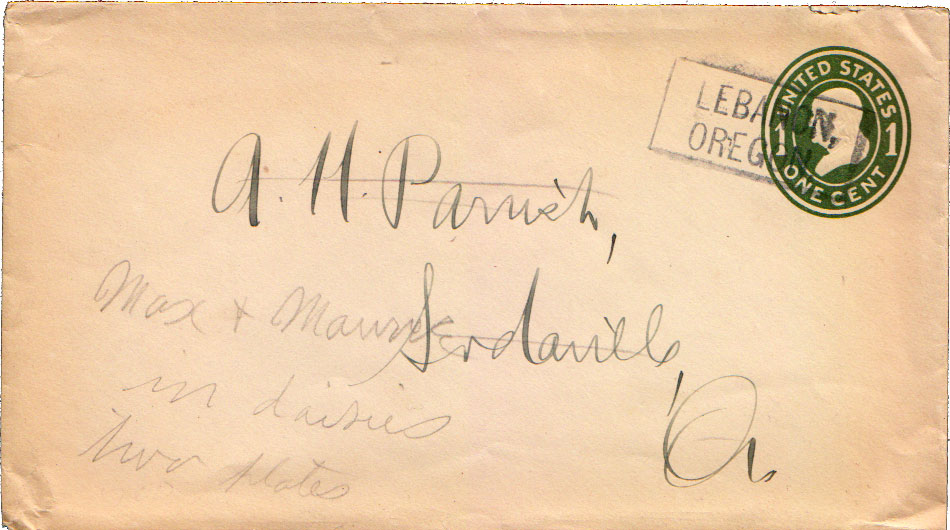 LEBANON,
OREGON
UNITED STATES
1 1
ONE CENT
A. H. Parrish,
Sodaville,
Or.
Max + Maurice
in daisies
two plates